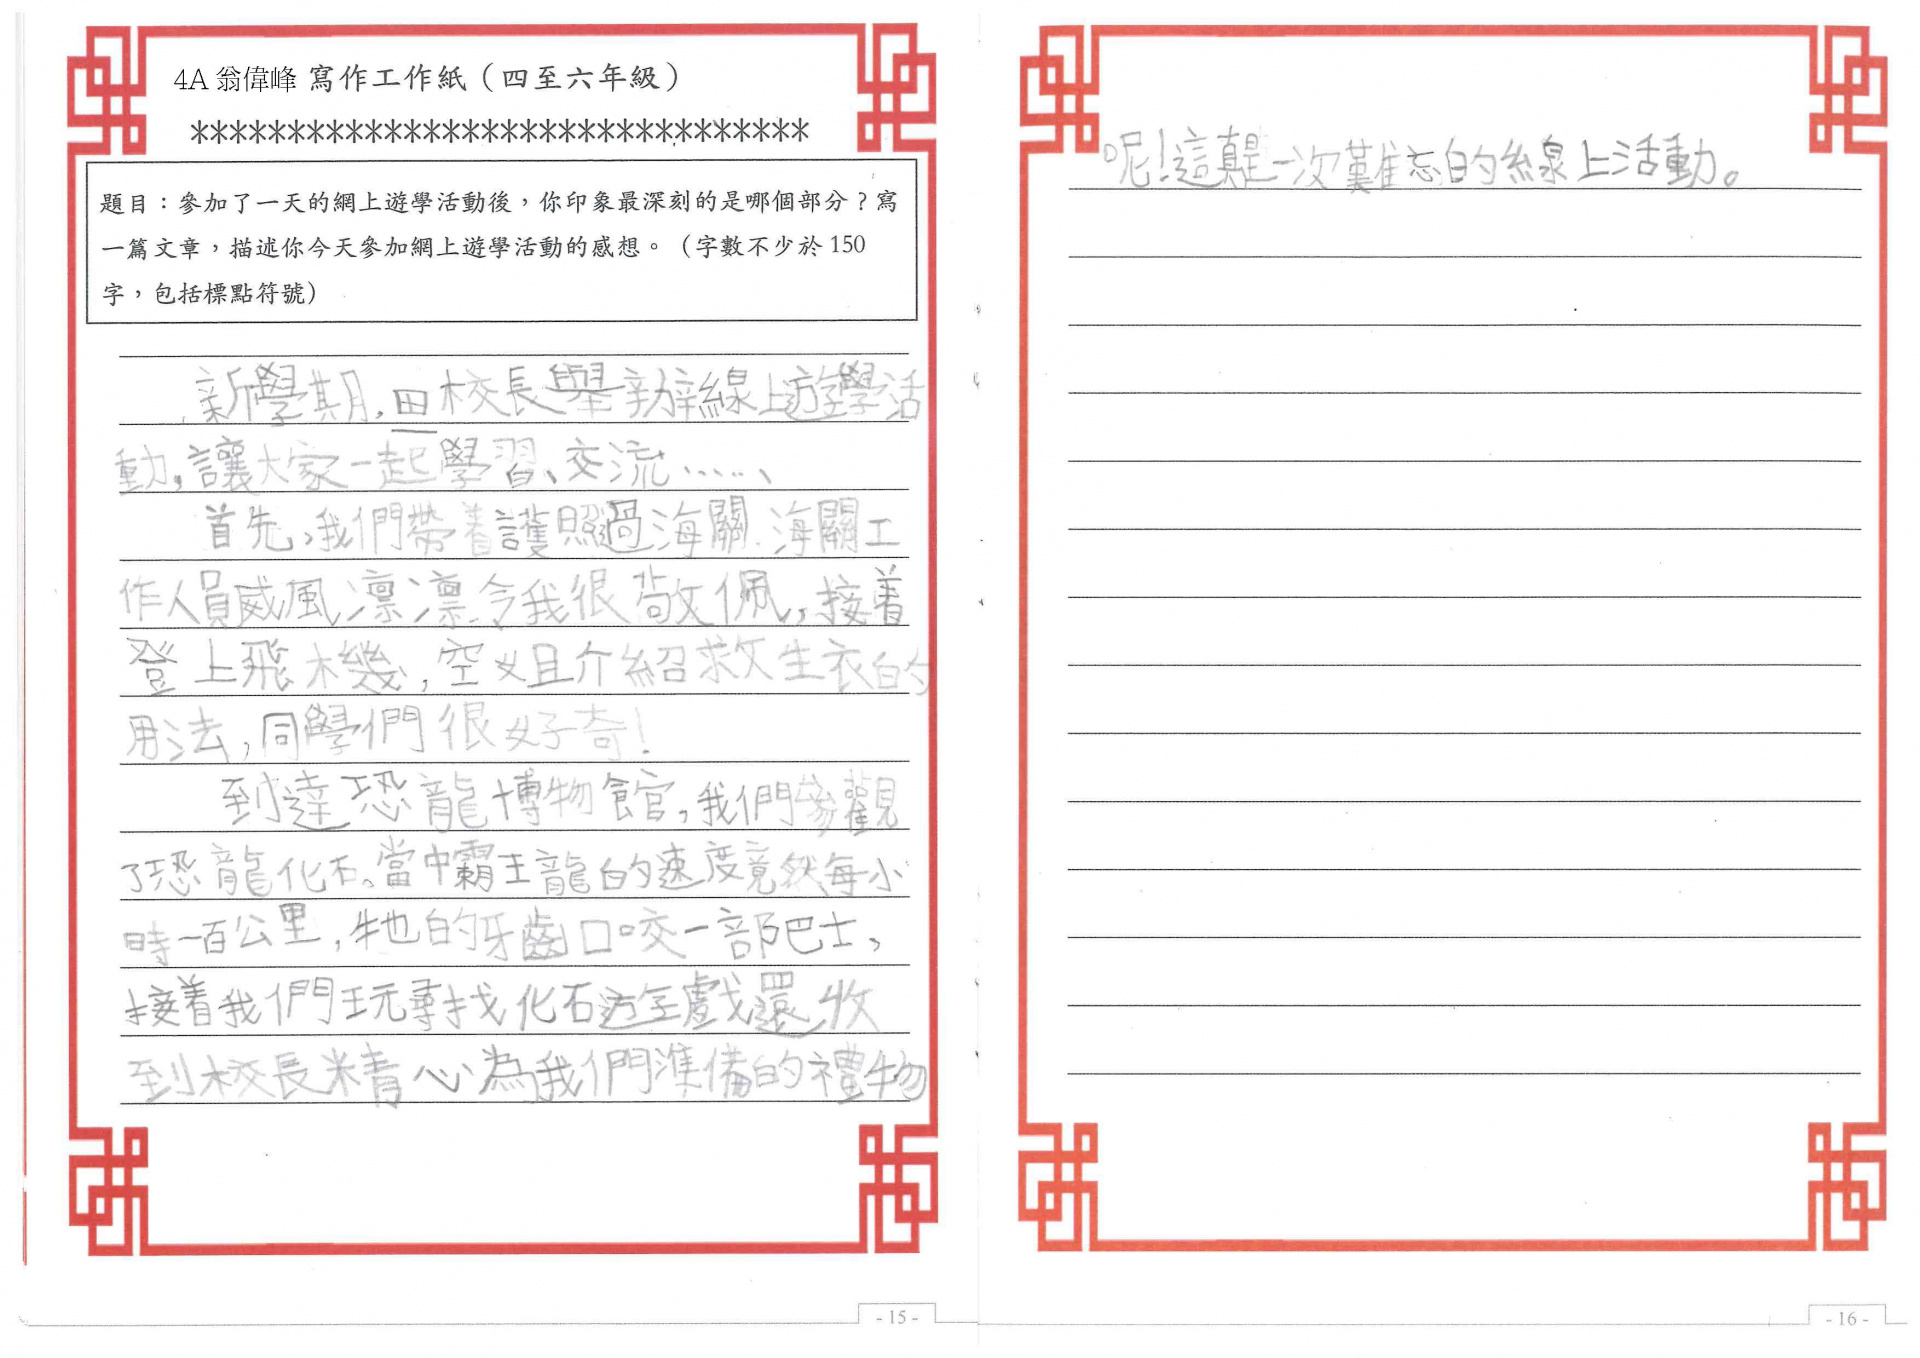 4A 翁偉峰 寫作工作紙（四至六年級）
********************************
題目：參加了一天的網上遊學活動後，你印象最深刻的是哪個部分？寫
一篇文章，描述你今天參加網上遊學活動的感想。（字數不少於 150
字，包括標點符號）
新學期，田校長舉辦線上遊學活
動，讓大家一起學習、交流……、
首先，我們帶着護照過海關．海關工
作人員威風凛凛．令我很敬佩，接着
登上飛機，空姐介紹救生衣的
用法，同學們很好奇！
到達恐龍博物館，我們參觀
了恐龍化石。當中霸王龍的速度竟然每小
時一百公里，牠的牙齒口咬一部巴士，
接着我們玩尋找化石遊戲還收
到校長精心為我們準備的禮物
- 15 -
呢！這真是一次難忘的線上活動。
- 16 -